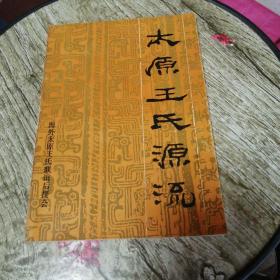 太原王氏源流
海外太原王氏联谊后援会